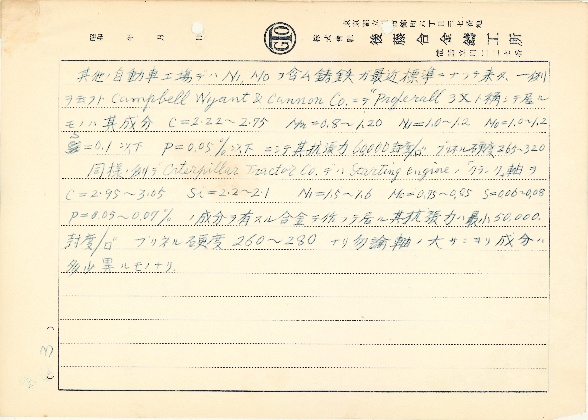 昭和 年 月 日
株式會社 後藤合金鑄工所
其他ノ自動車工場デハ Ni, Mo ヲ含ム鋳鉄ガ最近標準ニナッテ来タ、一例
ヲモッテ Campbell Wyant & Cannon Co. ニテ "Proferall 3X" ト稱シテ居ル
モノハ其成分 C=2.22~2.75 Mn=0.8~1.20 Ni=1.0~1.2 Mo=1.0~1.2
S=0.1以下 P=0.05%以下 ニシテ其抗張力 60000封度/□" ブリネル硬度 265~320
同様ノ例デ Caterpillar Tractor Co. デハ Starting Engine ノクランク軸ヲ
C=2.95~3.05 Si=2.2~2.1 Ni=1.5~1.6 Mo=0.75~0.85 S=0.06~0.08
P=0.05~0.07% ノ成分ヲ有スル合金デ作ッテ居ル其抗張力ハ最小50.000.
封度/□" ブリネル硬度 260~280 ナリ勿論軸ノ大サニヨリ成分ハ
多少異ルモノナリ.
(3)